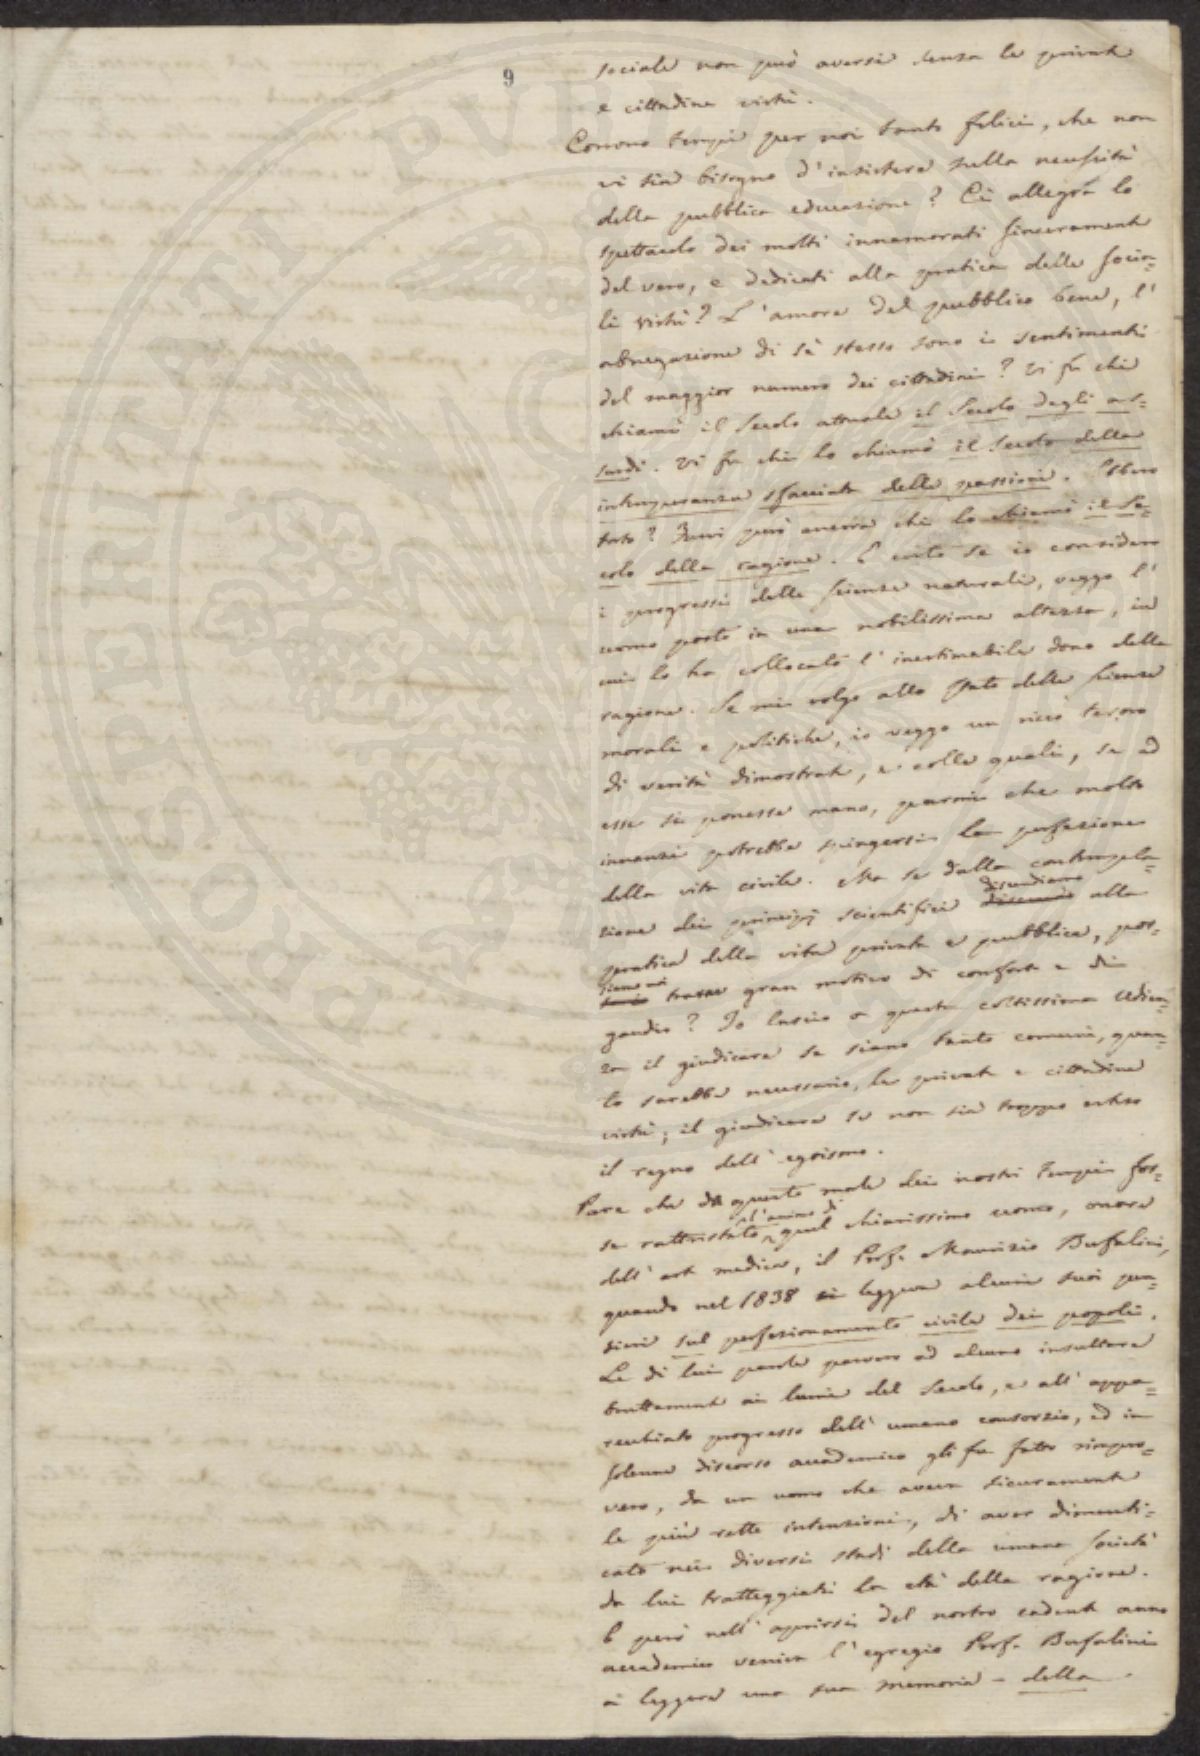 9
sociale non può aversi senza le private
e cittadine virtù.
Corrono tempi per noi tanto felici, che non
vi sia bisogno d'insistere sulla necessità
della pubblica educazione? Ci allegra lo
spettacolo dei molti innamorati sinceramente
del vero, e dedicati alla pratica delle socia=
li virtù? L'amore del pubblico bene, l'
abnegazione di sè stesso sono i sentimenti
del maggior numero dei cittadini? Vi fu chi
chiamò il secolo attuale il secolo degli as=
surdi. Vi fu chi lo chiamò il secolo della
intemperanza sfacciata delle passioni. Ebbero
torto? Havvi però ancora chi lo chiamò il se=
colo della ragione. E certo se io considero
i progressi delle scienze naturali, veggo l'
uomo posto in una nobilissima altezza, in
cui lo ha collocato l'inestimabile dono della
ragione. Se mi volgo allo stato delle scienze
morali e politiche, io veggo un ricco tesoro
di verità dimostrate, e colle quali, se ad
esse si ponesse mano, parmi che molto
innanzi potrebbe spingersi la perfezione
della vita civile. Ma se dalla contempla=
zione dei principj scientifici discendiamo alla
pratica della vita privata e pubblica, pos=
siamo noi trarre gran motivo di conforto e di
gaudio? Io lascio a questa coltissima Udien=
za il giudicare se siano tanto comuni, quan=
to sarebbe necessario, le private e cittadine
virtù; il giudicare se non sia troppo esteso
il regno dell'egoismo.
Pare che da questo male dei nostri tempi fos=
se rattristato l'animo di quel chiarissimo uomo, onore
dell'arte medica, il Prof. Maurizio Bufalini,
quando nel 1838 ei leggeva alcuni suoi pen=
sieri sul perfezionamento civile dei popoli.
Le di lui parole parvero ad alcuno insultare
bruttamente ai lumi del secolo, e all'appa=
recchiato progresso dell'umano consorzio, ed in
solenne discorso accademico gli fu fatto rimpro=
vero, da un uomo che aveva sicuramente
le più rette intenzioni, di aver dimenti=
cato nei diversi stadi della umana società
da lui tratteggiati la età della ragione.
E però nell'aprirsi del nostro cadente anno
accademico veniva l'egregio Prof. Bufalini
a leggere una sua memoria - della